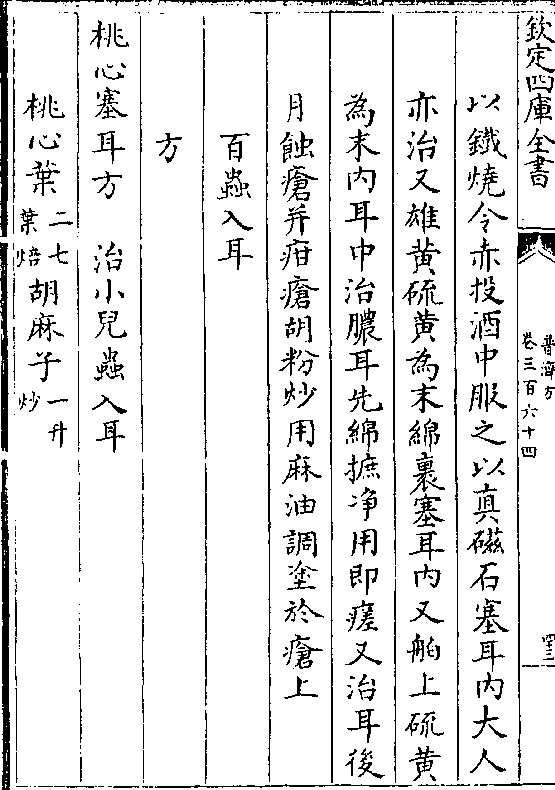 欽定四庫全書
普濟方
卷三百六十四
以鐵燒令赤投酒中服之以真磁石塞耳內大人
亦治又雄黄硫黄為末綿裹塞耳內又舶上硫黄
為末內耳中治膿耳先綿摭净用即瘥又治耳後
月蝕瘡并疳瘡胡粉炒用麻油調塗於瘡上
百蟲入耳
方
桃心塞耳方　治小兒蟲入耳
桃心葉二七葉焙胡麻子一升炒